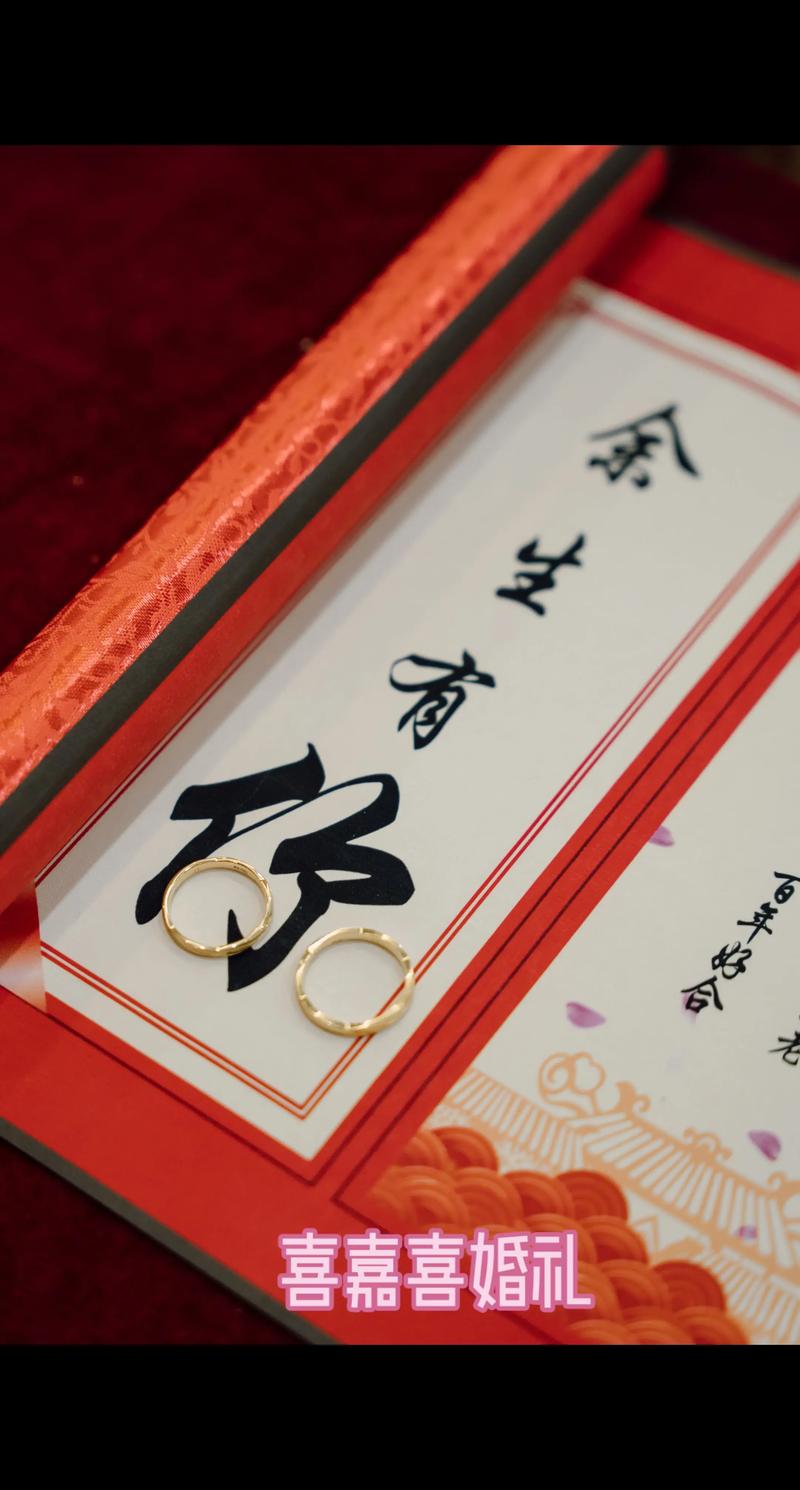 余生有你
百年好合
老
喜嘉喜婚礼